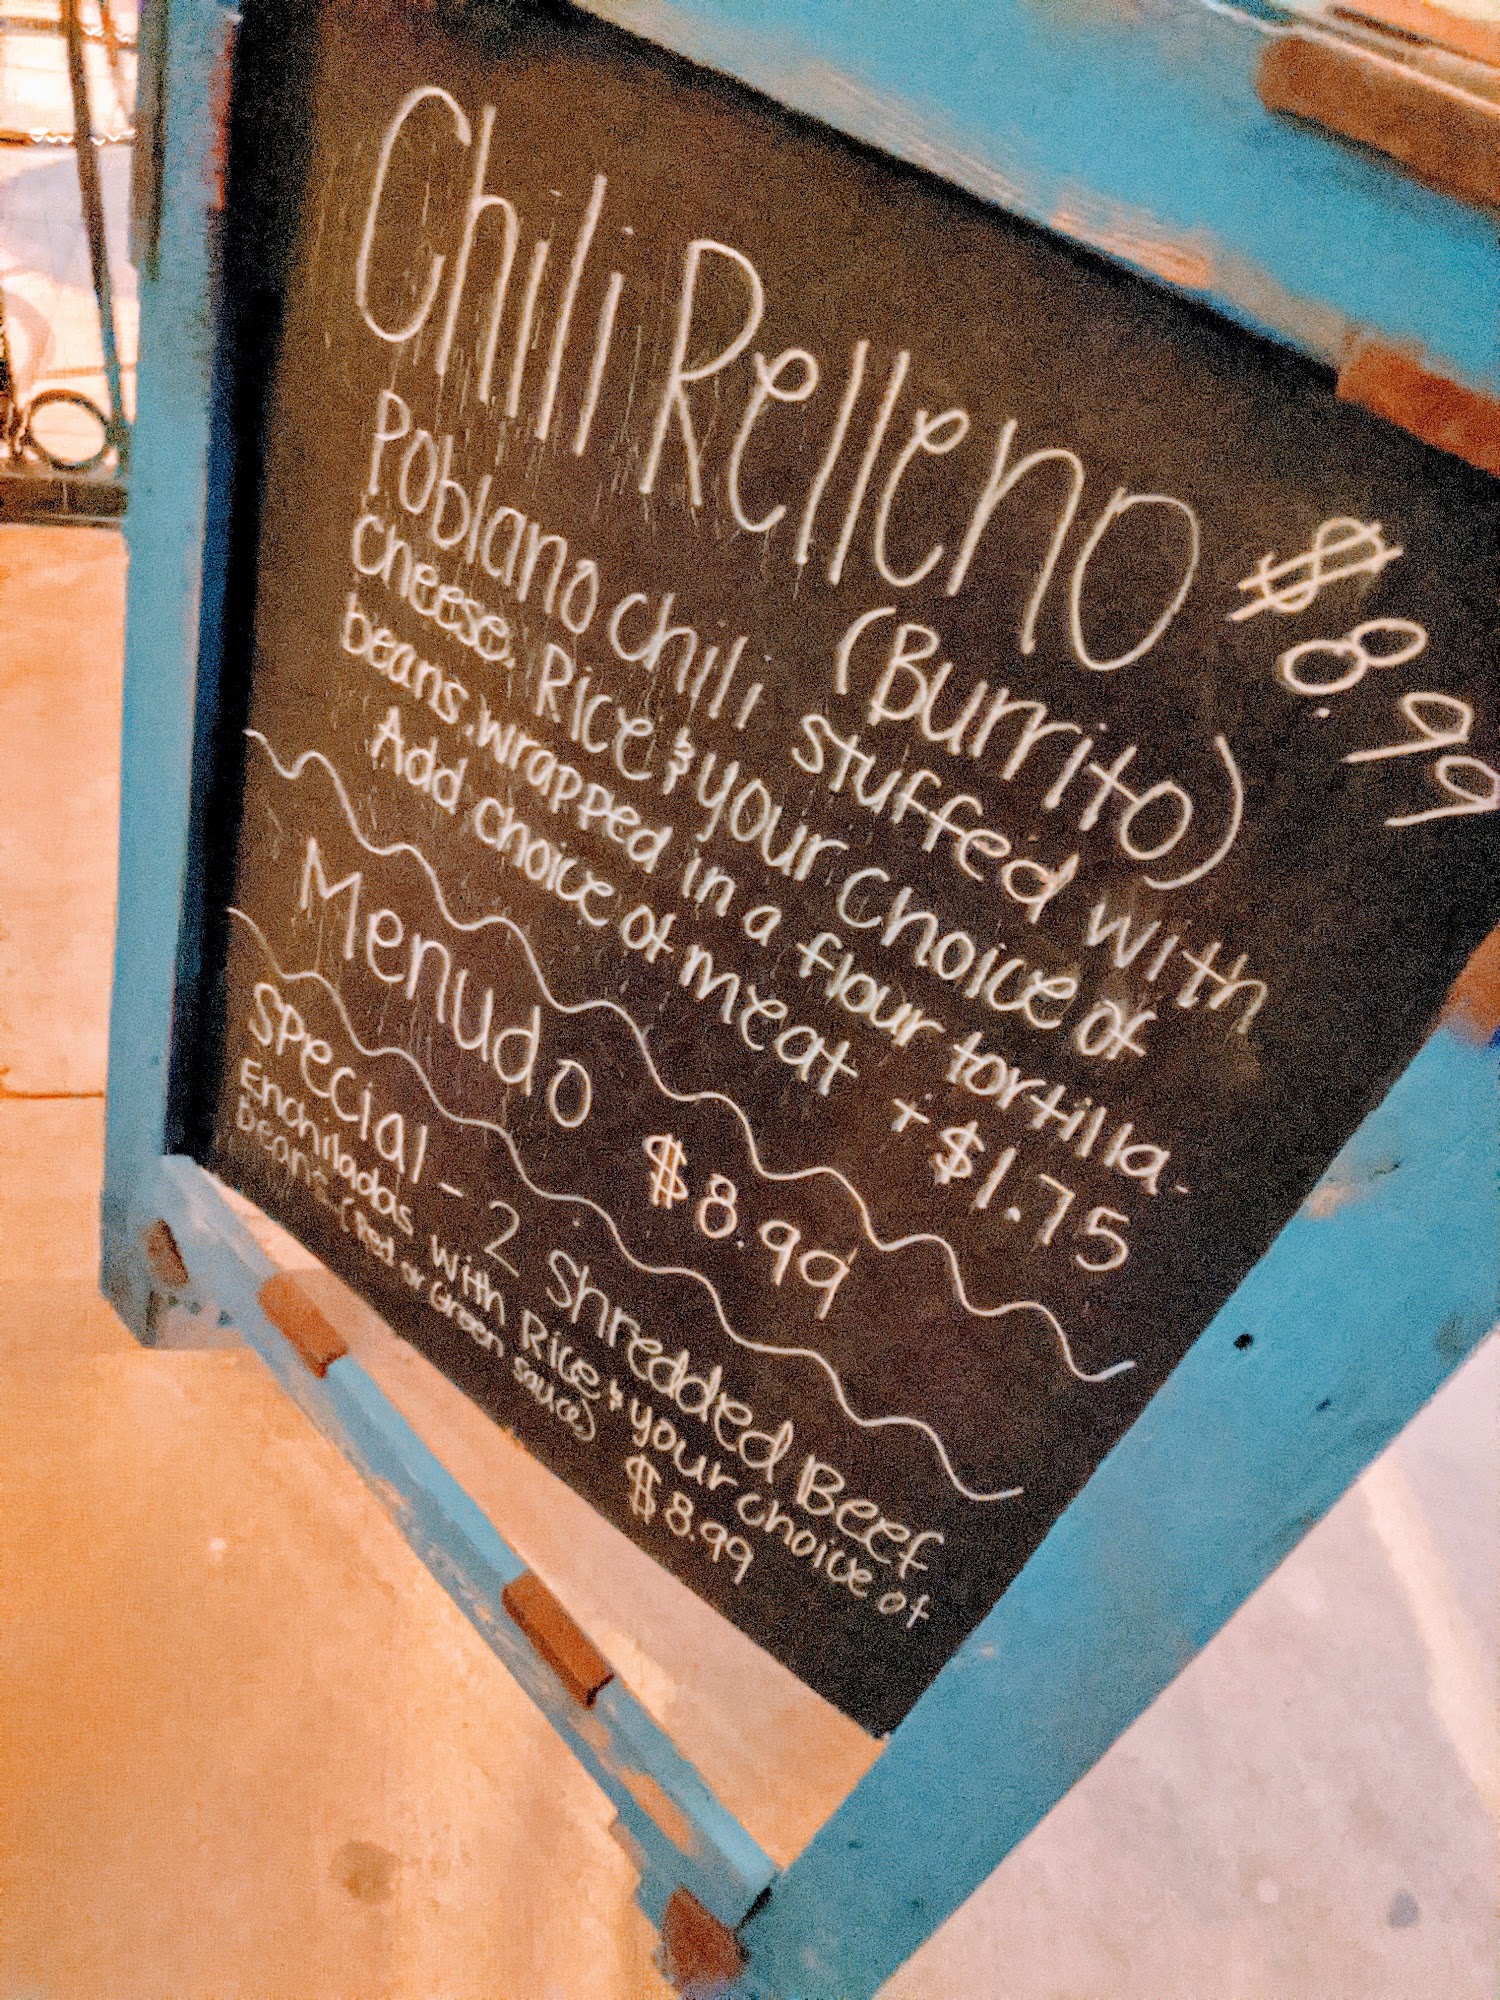 Chili Relleno $8.99
(Burrito)
Poblano chili stuffed with
cheese. Rice & your choice of
beans. wrapped in a flour tortilla.
Add choice of meat + $1.75
Menudo $8.99
Special - 2 Shredded Beef
Enchiladas with Rice & your choice of
beans - (Red or Green sauce)
$8.99